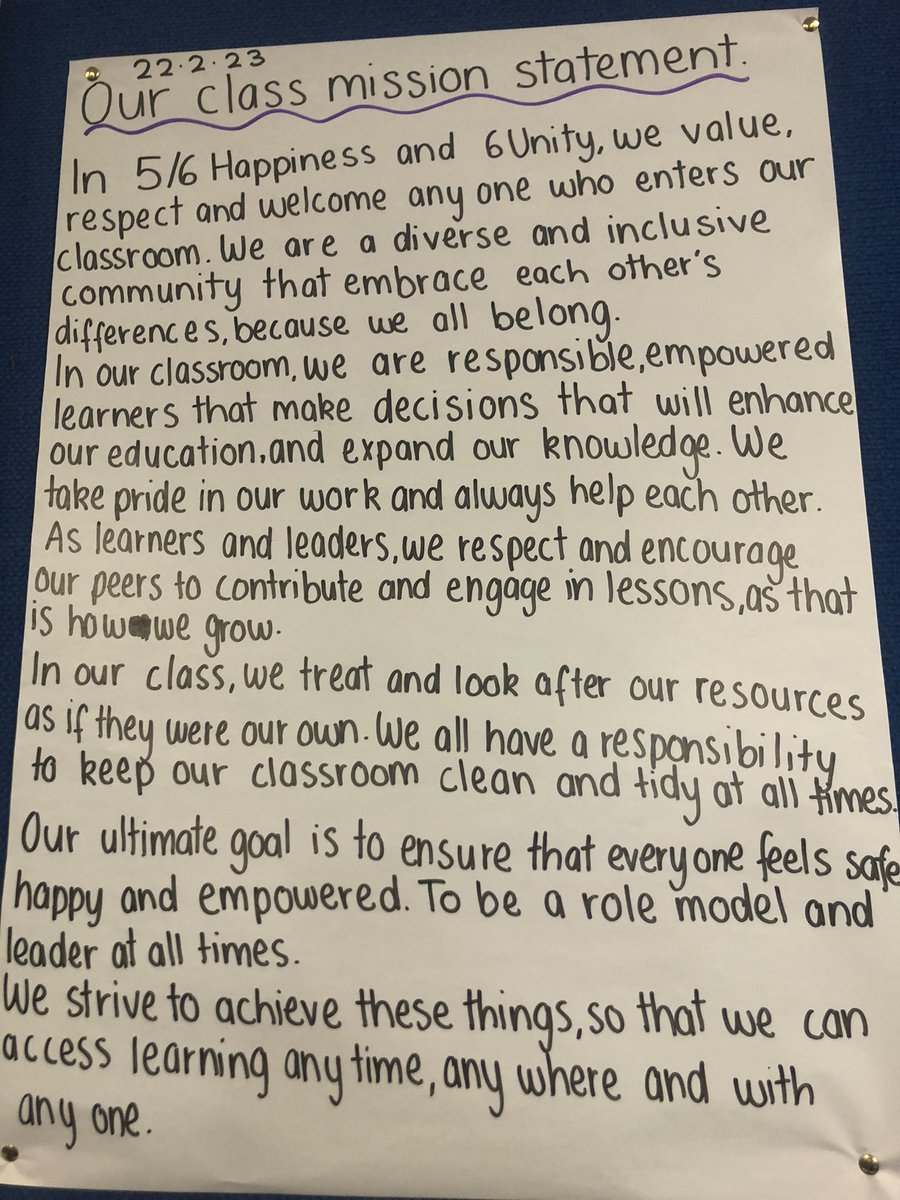 22.2.23
Our class mission statement.
In 5/6 Happiness and 6Unity, we value,
respect and welcome any one who enters our
classroom. We are a diverse and inclusive
community that embrace each other's
differences, because we all belong.
In our classroom, we are responsible, empowered
learners that make decisions that will enhance
our education, and expand our knowledge. We
take pride in our work and always help each other.
As learners and leaders, we respect and encourage
our peers to contribute and engage in lessons, as that
is how we grow.
In our class, we treat and look after our resources
as if they were our own. We all have a responsibility
to keep our classroom clean and tidy at all times.
Our ultimate goal is to ensure that everyone feels safe
happy and empowered. To be a role model and
leader at all times.
We strive to achieve these things, so that we can
access learning any time, any where and with
any one.